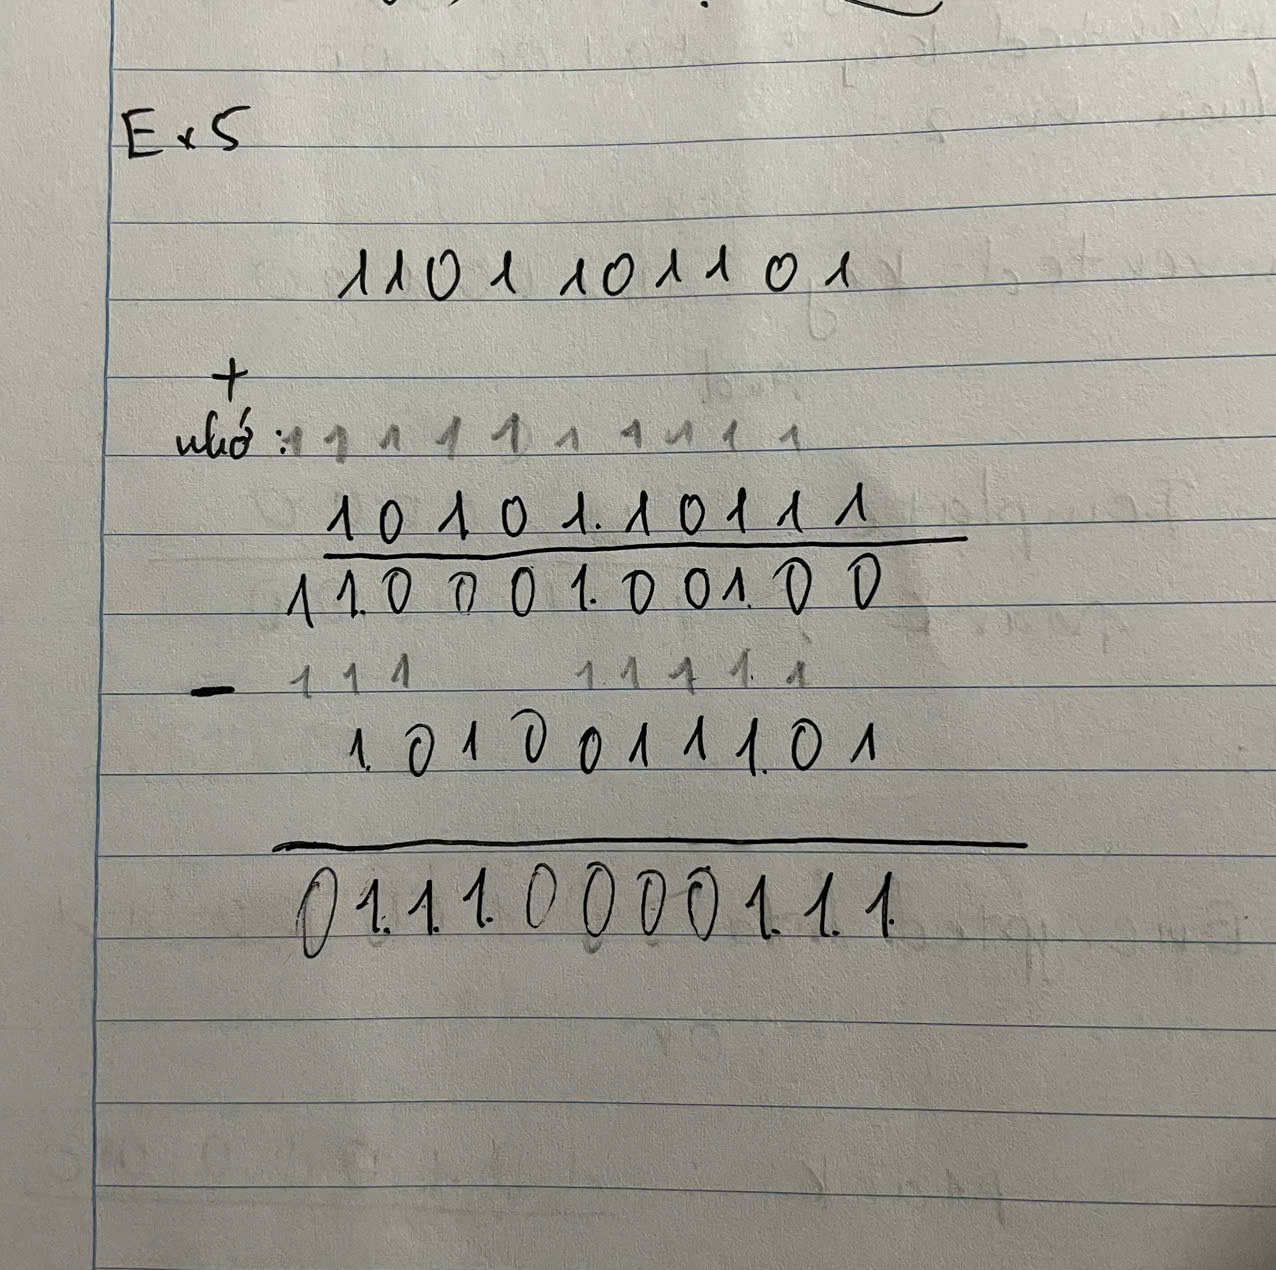 Ex5
1101101101
+
nhớ: 1111111111
10101.10111
11.0001.001.00
- 111 1111.1
1.0100111.01
01.1.1.00001.1.1.